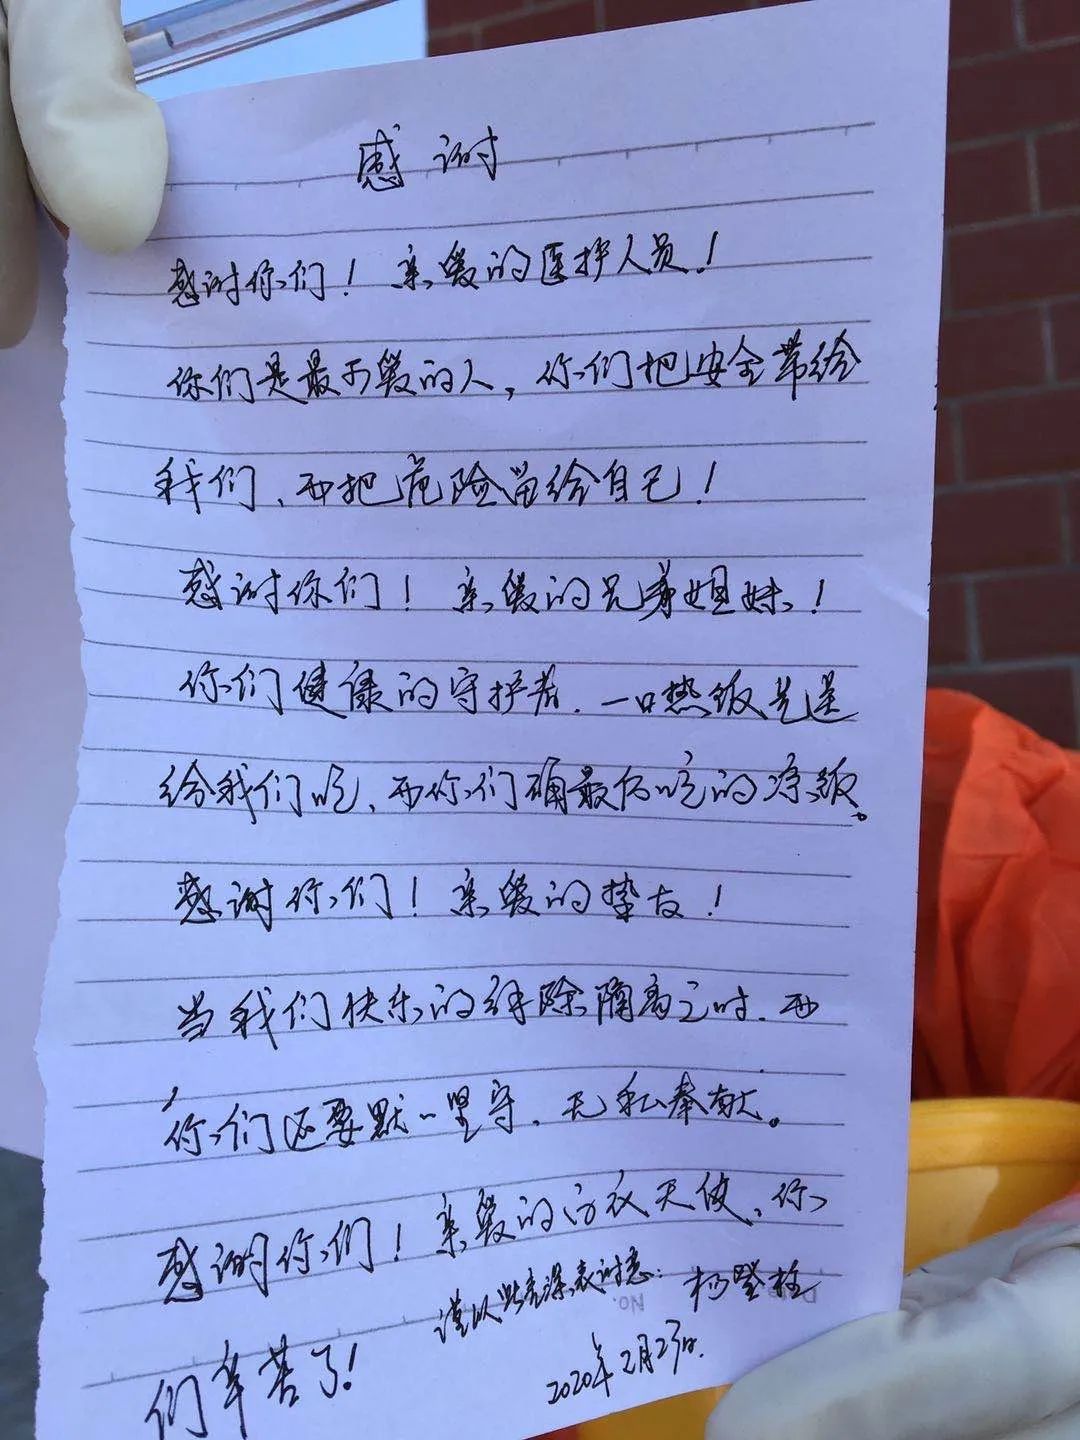 感谢
感谢你们！亲爱的医护人员！
你们是最可爱的人，你们把安全带给
我们、而把危险留给自己！
感谢你们！亲爱的兄弟姐妹！
你们健康的守护者．一口热饭先送
给我们吃、而你们确最后吃的凉饭。
感谢你们！亲爱的挚友！
当我们快乐的解除隔离之时．而
你们还要默默坚守．无私奉献。
感谢你们！亲爱的白衣天使、你
们辛苦了！
谨以此表深表谢意：杨登柱
No.
2020年2月23日.